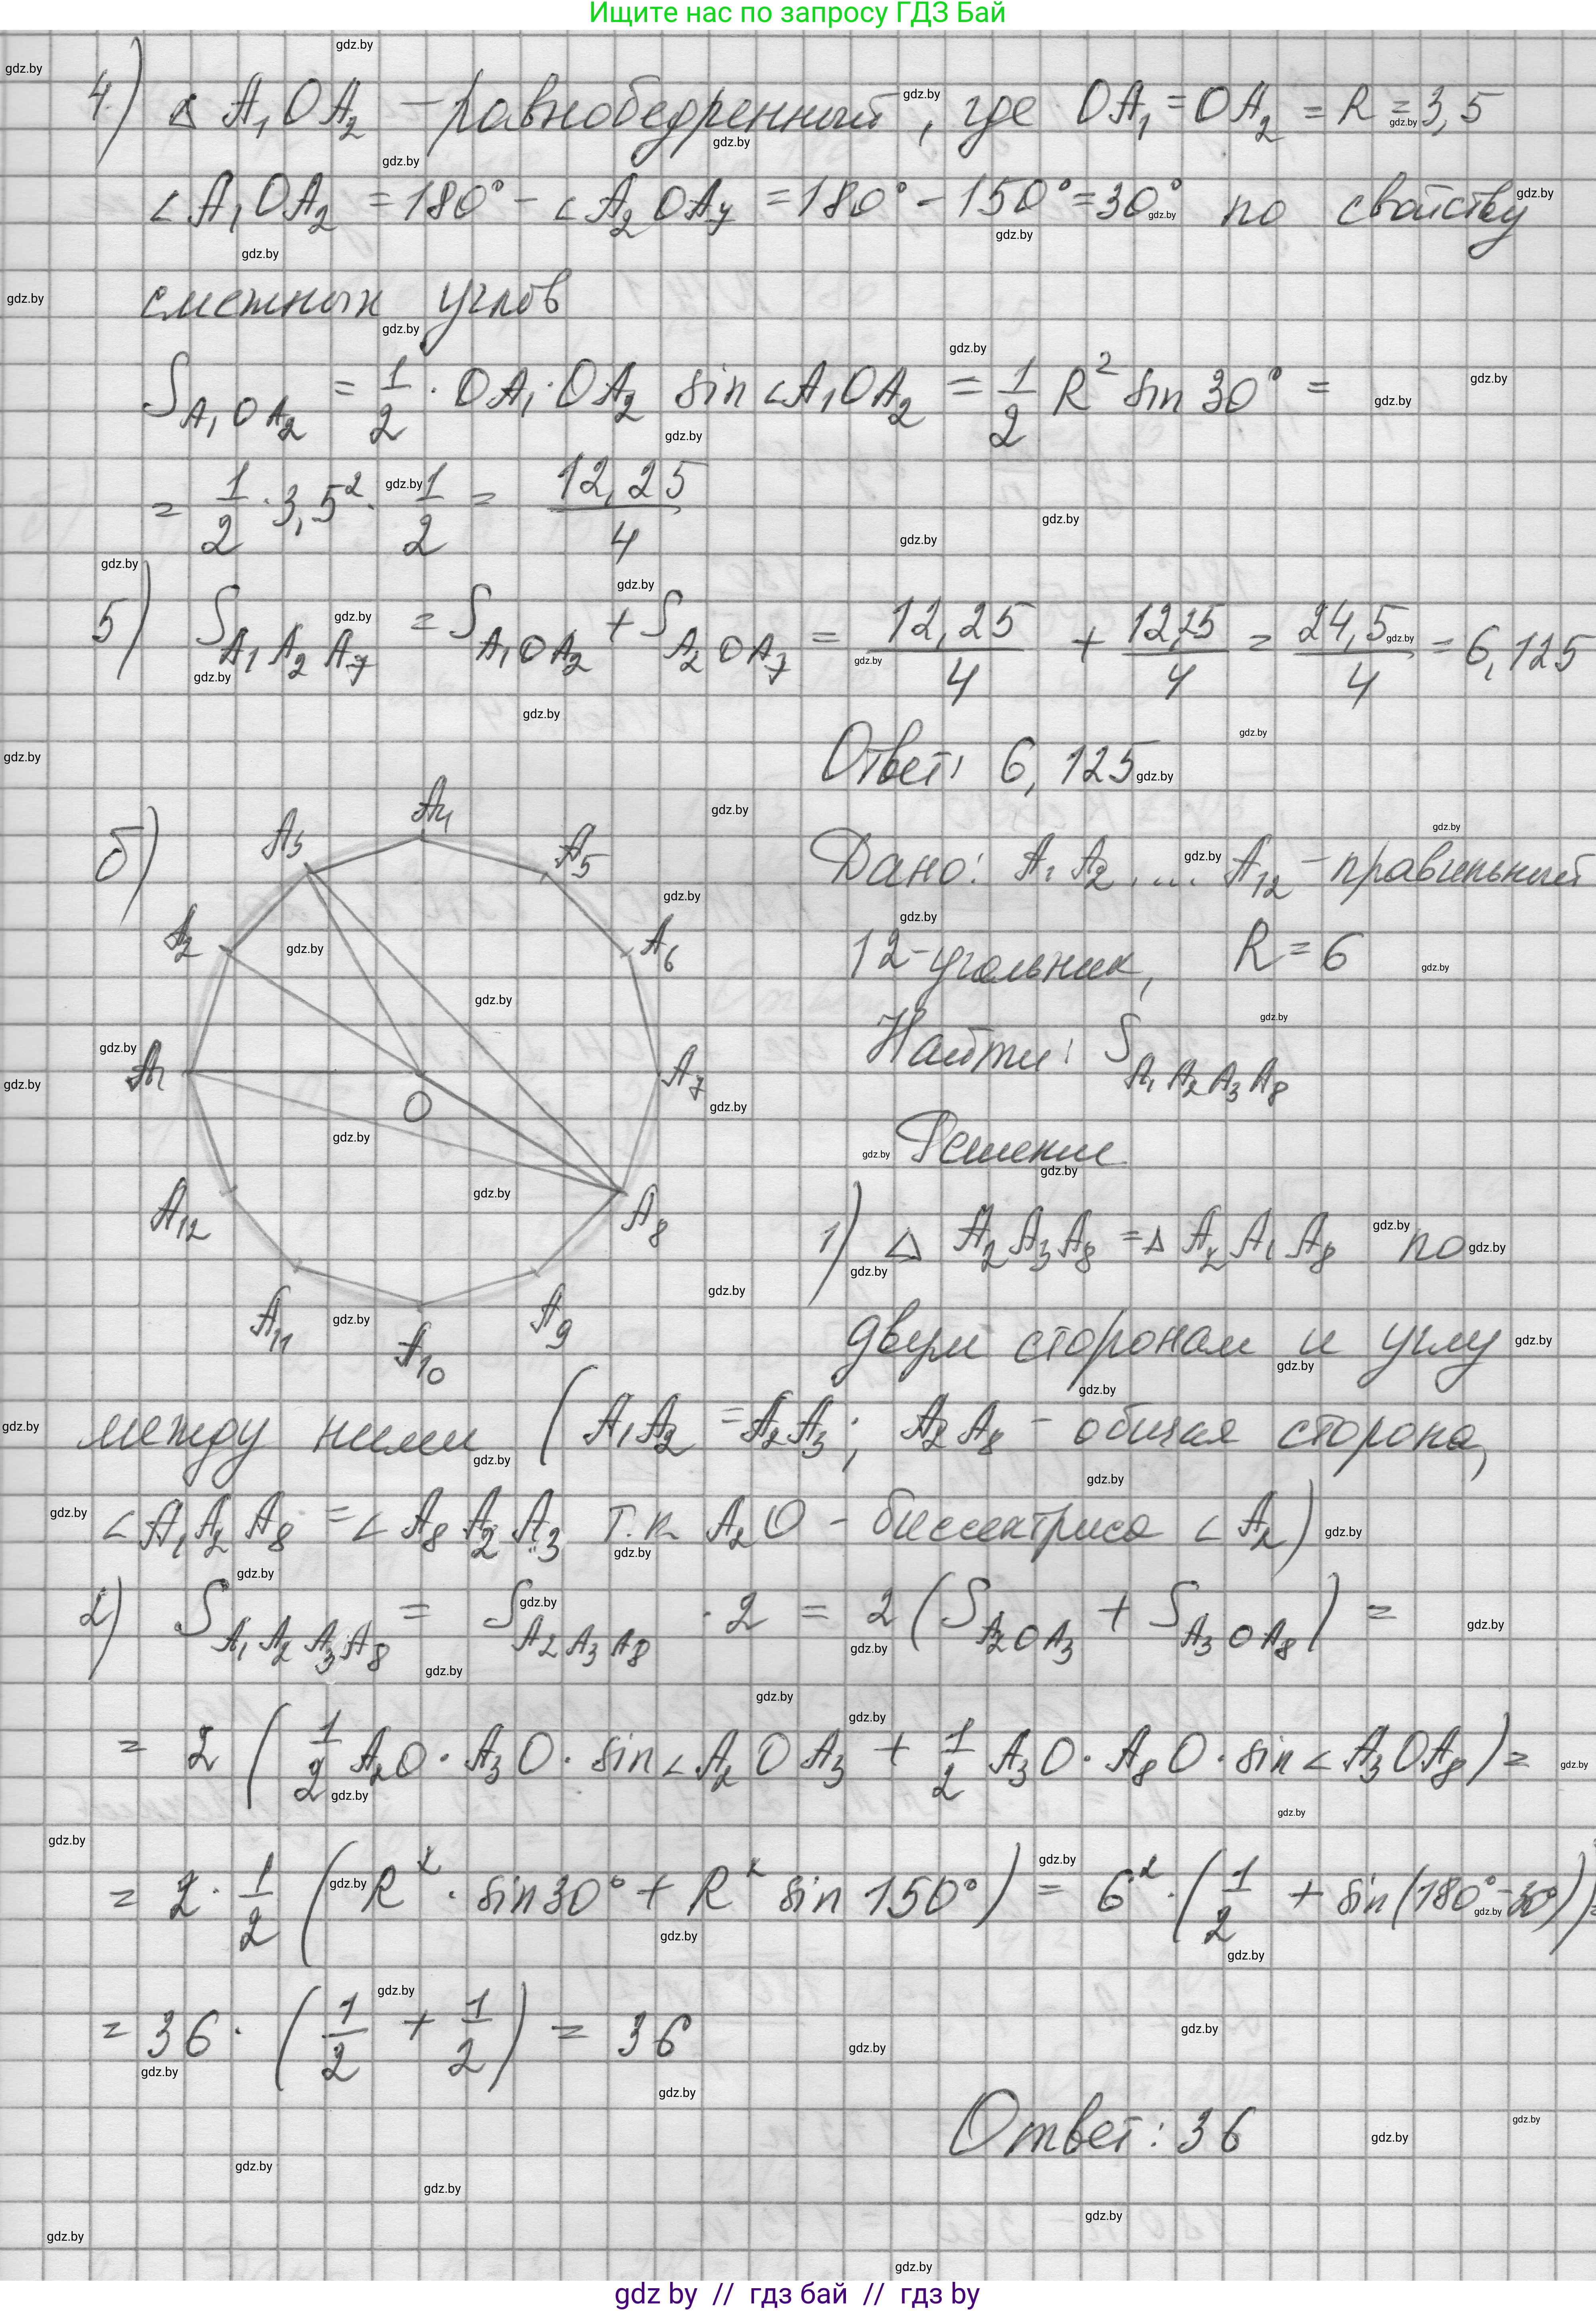 Ищите нас по запросу ГДЗ Бай
4) △ A₁OA₂ – равнобедренный, где OA₁ = OA₂ = R = 3,5
∠A₁OA₂ = 180° - ∠A₂OA₇ = 180° - 150° = 30° по свойству
смежных углов
S_A₁OA₂ = 1/2 · OA₁ · OA₂ sin ∠A₁OA₂ = 1/2 R² sin 30° =
= 1/2 · 3,5² · 1/2 = 12,25/4
5) S_A₁A₂A₇ = S_A₁OA₂ + S_A₂OA₇ = 12,25/4 + 12,25/4 = 24,5/4 = 6,125
Ответ: 6,125
б)
A₁ A₂ A₃ A₄ A₅ A₆ A₇ A₈ A₉ A₁₀ A₁₁ A₁₂ O
Дано: A₁A₂...A₁₂ – правильный
12-угольник, R = 6
Найти: S_A₁A₂A₃A₈
Решение
1) △ A₂A₃A₈ = △ A₂A₁A₈ по
двум сторонам и углу
между ними (A₁A₂ = A₂A₃; A₂A₈ – общая сторона,
∠A₁A₂A₈ = ∠A₈A₂A₃ т.к. A₂O – биссектриса ∠A₂)
2) S_A₁A₂A₃A₈ = S_A₂A₃A₈ · 2 = 2(S_A₂OA₃ + S_A₃OA₈) =
= 2 (1/2 A₂O · A₃O · sin ∠A₂OA₃ + 1/2 A₃O · A₈O · sin ∠A₃OA₈) =
= 2 · 1/2 (R² · sin 30° + R² sin 150°) = 6² · (1/2 + sin(180° - 30°)) =
= 36 · (1/2 + 1/2) = 36
Ответ: 36
gdz by // гдз бай // гдз by